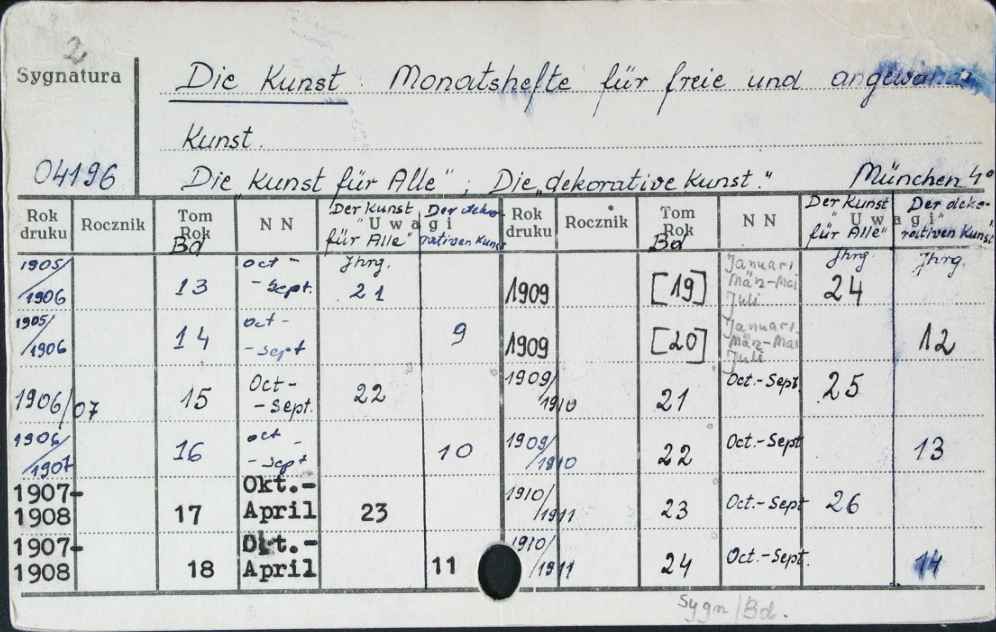 2
Sygnatura
04196
Die Kunst. Monatshefte für freie und angewandte
Kunst.
Die Kunst für Alle"; Die „dekorative Kunst." München 4°
Rok druku Rocznik Tom Rok Bd NN Uwagi Der Kunst für Alle" Der deko-rativen Kunst Rok druku Rocznik Tom Rok Bd NN Uwagi Der Kunst für Alle" Der deko-rativen Kunst
Jhrg. Jhrg. Jhrg.
1905/1906 13 Oct - - Sept. 21 1909 [19] Januari, März-Mai Juli 24
1905/1906 14 Oct - - Sept 9 1909 [20] Januari, März-Mai Juli 12
1906/07 15 Oct - - Sept. 22 1909/1910 21 Oct.-Sept 25
1906/1907 16 Oct - - Sept 10 1909/1910 22 Oct.-Sept 13
1907-1908 17 Okt.-April 23 1910/1911 23 Oct.-Sept 26
1907-1908 18 Okt.-April 11 1910/1911 24 Oct.-Sept. 14
Sygn/Bd.